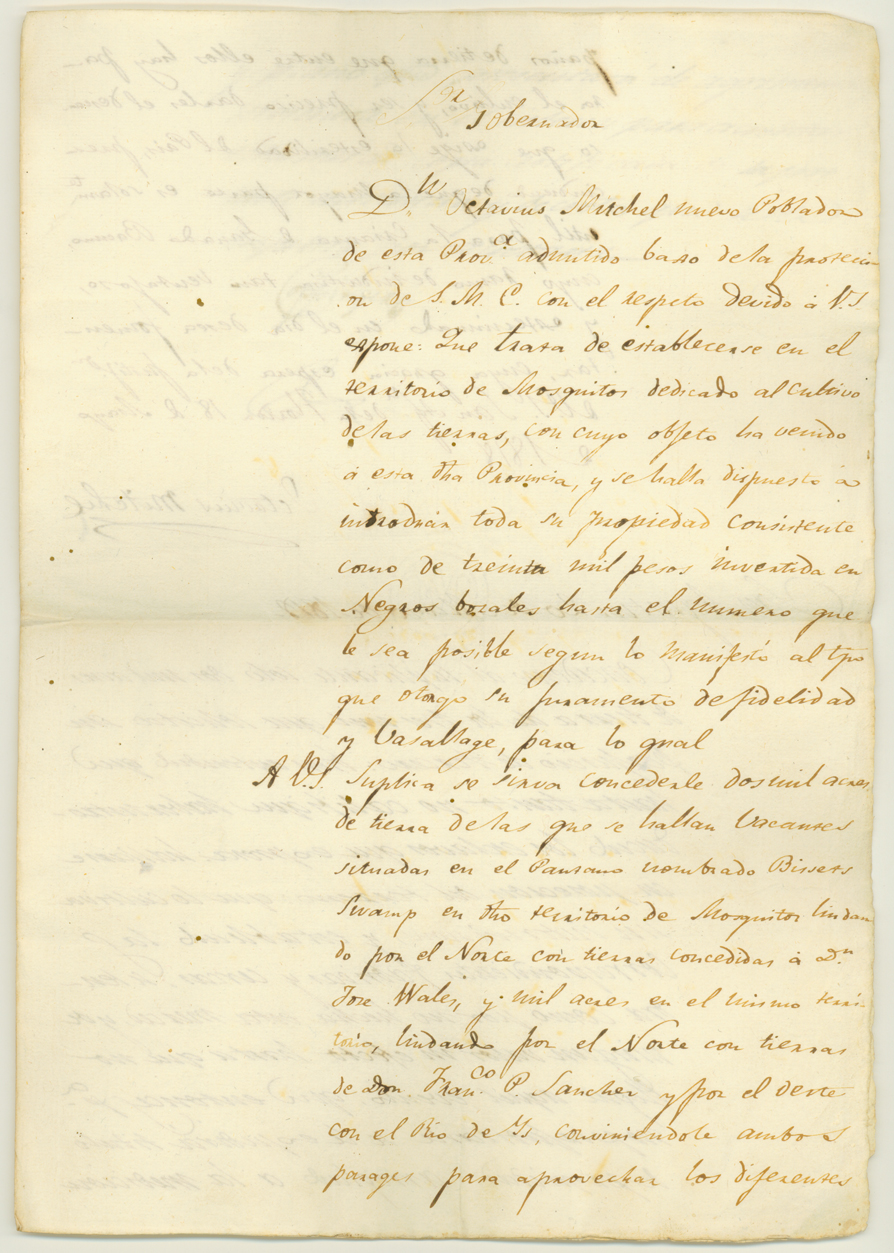 Sr
Gobernador
Dn Octavius Mitchel nuevo Poblador
de esta Prova admitido baxo de la protecci-
on de S. M. C. con el respeto devido á V.S.
expone: Que trata de establecerse en el
territorio de Mosquitos dedicado al cultivo
de las tierras, con cuyo objeto ha venido
á esta dha Provincia, y se halla dispuesto á
introducir toda su propiedad consistente
como de treinta mil pesos invertida en
Negros bozales hasta el numero que
le sea posible segun lo manifestó al tpo
que otorgo su juramento de fidelidad
y Vasallage, para lo qual
A V.S. Suplica se sirva concederle dos mil acres
de tierra de las que se hallan Vacantes
situadas en el Pantano nombrado Bissets
Swamp en dho territorio de Mosquitos lindan
do por el Norte con tierras concedidas á Dn
Jose Wales, y mil acres en el mismo terri-
torio, lindando por el Norte con tierras
de Don Franco P. Sanchez y por el Oeste
con el Rio de Ys, conviniendole ambos
parages para aprovechar los diferentes